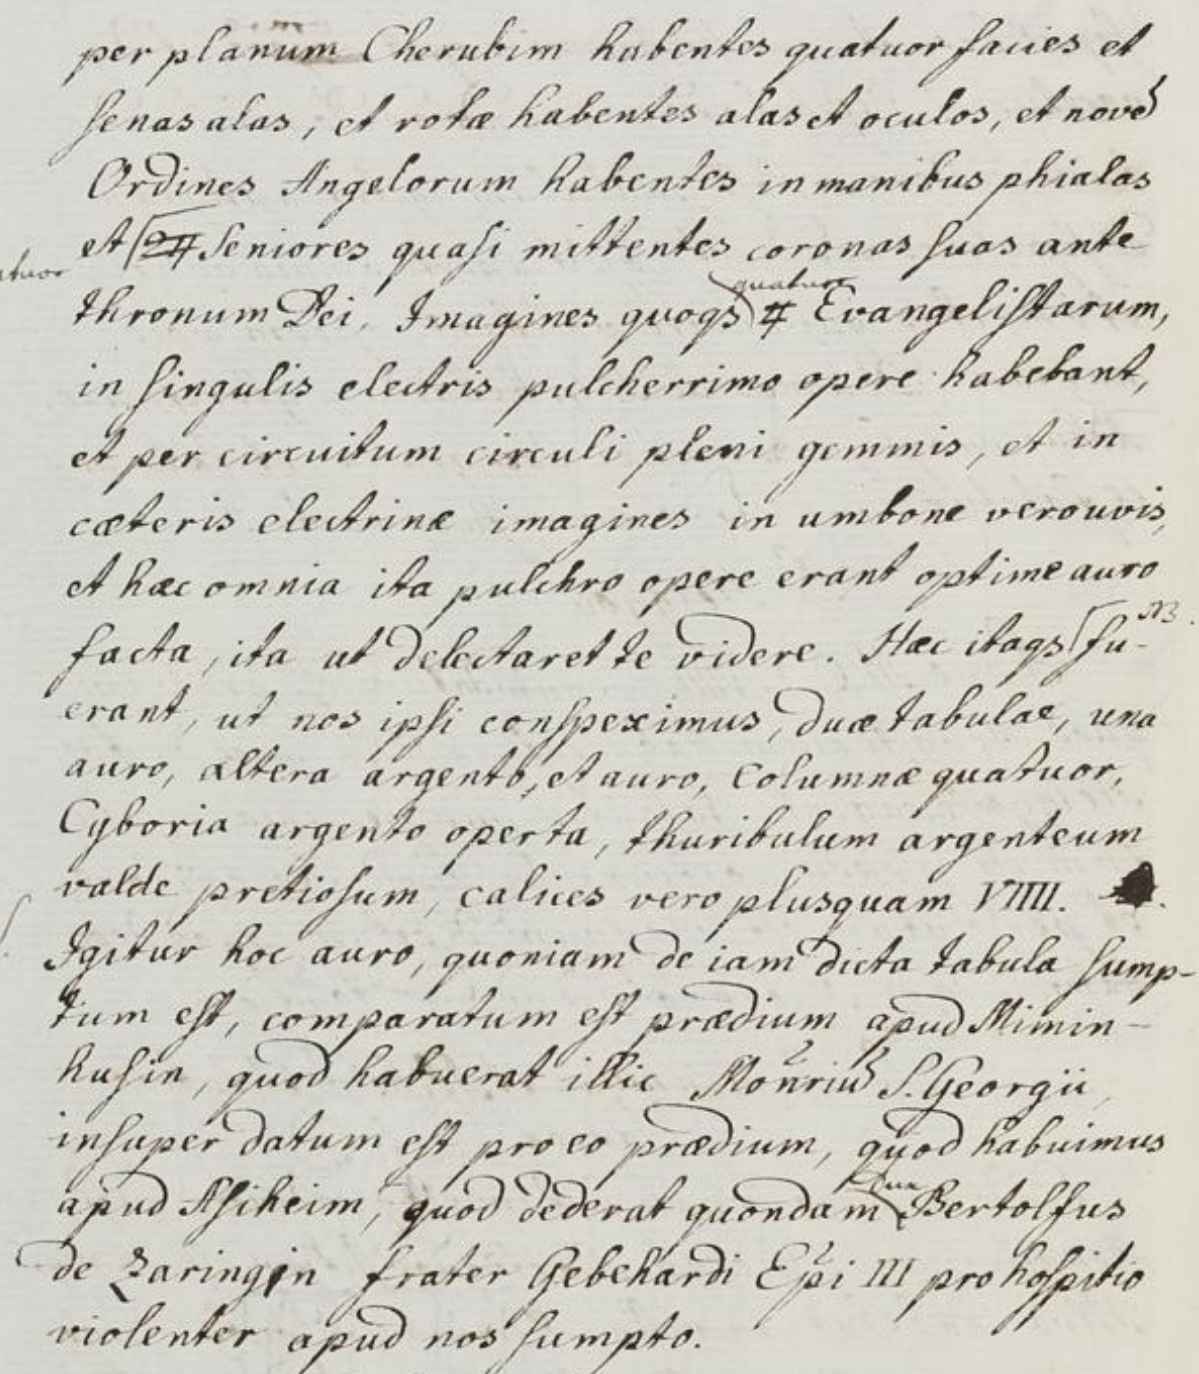 per planum Cherubim habentes quatuor facies et
senas alas, et rotæ habentes alas et oculos, et novē
Ordines Angelorum habentes in manibus phialas
et 24 Seniores quasi mittentes coronas suas ante
atuor
thronum Dei. Imagines quoqs 4 Evangelistarum,
quatuor
in singulis electris pulcherrimo opere habebant,
et per circuitum circuli pleni gemmis, et in
cæteris electrinæ imagines in umbone vero uvis,
et hæc omnia ita pulchro opere erant optime auro
facta, ita ut delectaret te videre. Hæc itaqs fu-
NB.
erant, ut nos ipsi conspeximus, duæ tabulae, una
auro, altera argento, et auro, Columnæ quatuor,
Cyboria argento operta, thuribulum argenteum
valde pretiosum, calices vero plusquam VIIII.
Igitur hoc auro, quoniam de iam dicta tabula sump-
tum est, comparatum est prædium apud Mimin-
husin, quod habuerat illic Monriū S. Georgii,
insuper datum est pro eo prædium, quod habuimus
apud Asiheim, quod dederat quondam Bertolfus
Dux
de Zaringin frater Gebehardi Epi III pro hospitio
violenter apud nos sumpto.